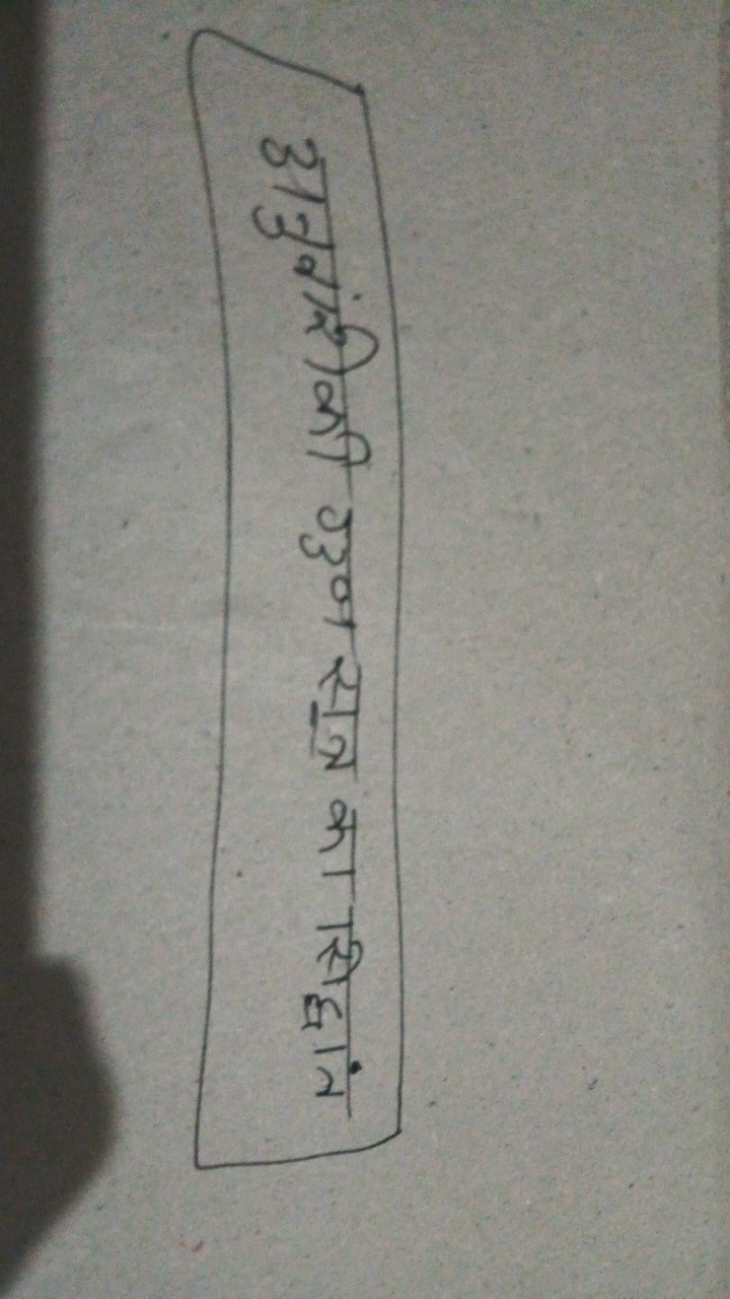 अनुवंशिकी गुण सूत्र का सिद्धांत